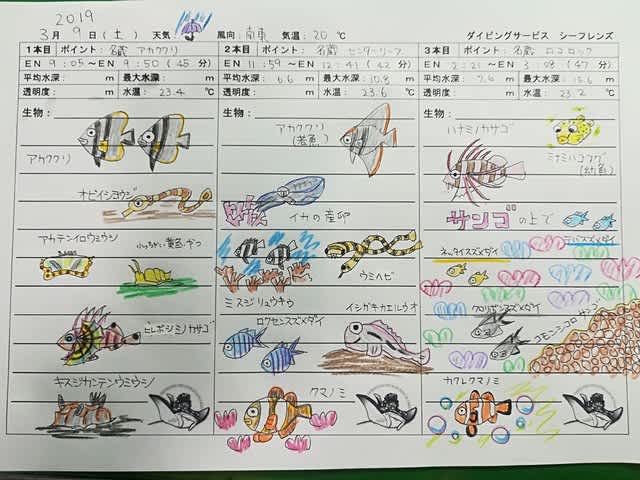 2019
3月 9日(土) 天気: 風向: 南東 気温: 20 ℃ ダイビングサービス シーフレンズ
1本目 ポイント: 名蔵 アカククリ
EN 9:05〜EN 9:50 (45分)
平均水深: m 最大水深: m
透明度: m 水温: 23.4 ℃
生物:
アカククリ
オビイシヨウジ
アカテンイロウミウシ
小っちゃい黄色いやつ
ヒレボシミノカサゴ
キスジカンテンウミウシ
2本目 ポイント: 名蔵 センターリーフ
EN 11:59〜EN 12:41 (42分)
平均水深: 6.6 m 最大水深: 10.8 m
透明度: m 水温: 23.6 ℃
生物:
アカククリ
(若魚)
イカの産卵
ウミヘビ
ミスジリュウキウ
イシガキカエルウオ
ロクセンスズメダイ
クマノミ
3本目 ポイント: 名蔵 ロコロック
EN 2:21〜EN 3:08 (47分)
平均水深: 7.6 m 最大水深: 15.6 m
透明度: m 水温: 23.2 ℃
生物:
ハナミノカサゴ
ミナミハコフグ
(幼魚)
サンゴの上で
デバスズメダイ
ネッタイスズメダイ
クロリボンスズメダイ
コモンシコロサンゴ
カクレクマノミ